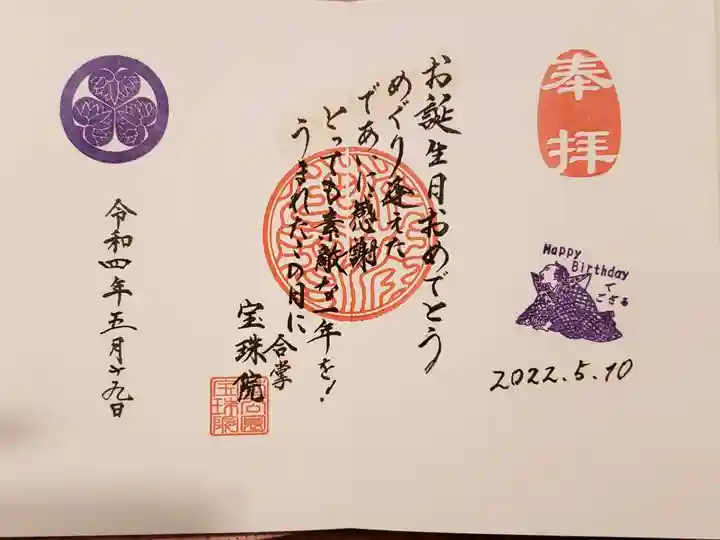 奉拝
Happy
Birthday
で
ござる
2022.5.10
お誕生日おめでとう
めぐり逢えた
であいに感謝
とっても素敵な一年を!
うまれたこの日に
合掌
宝珠院
芝公園
宝珠院
令和四年五月廿九日